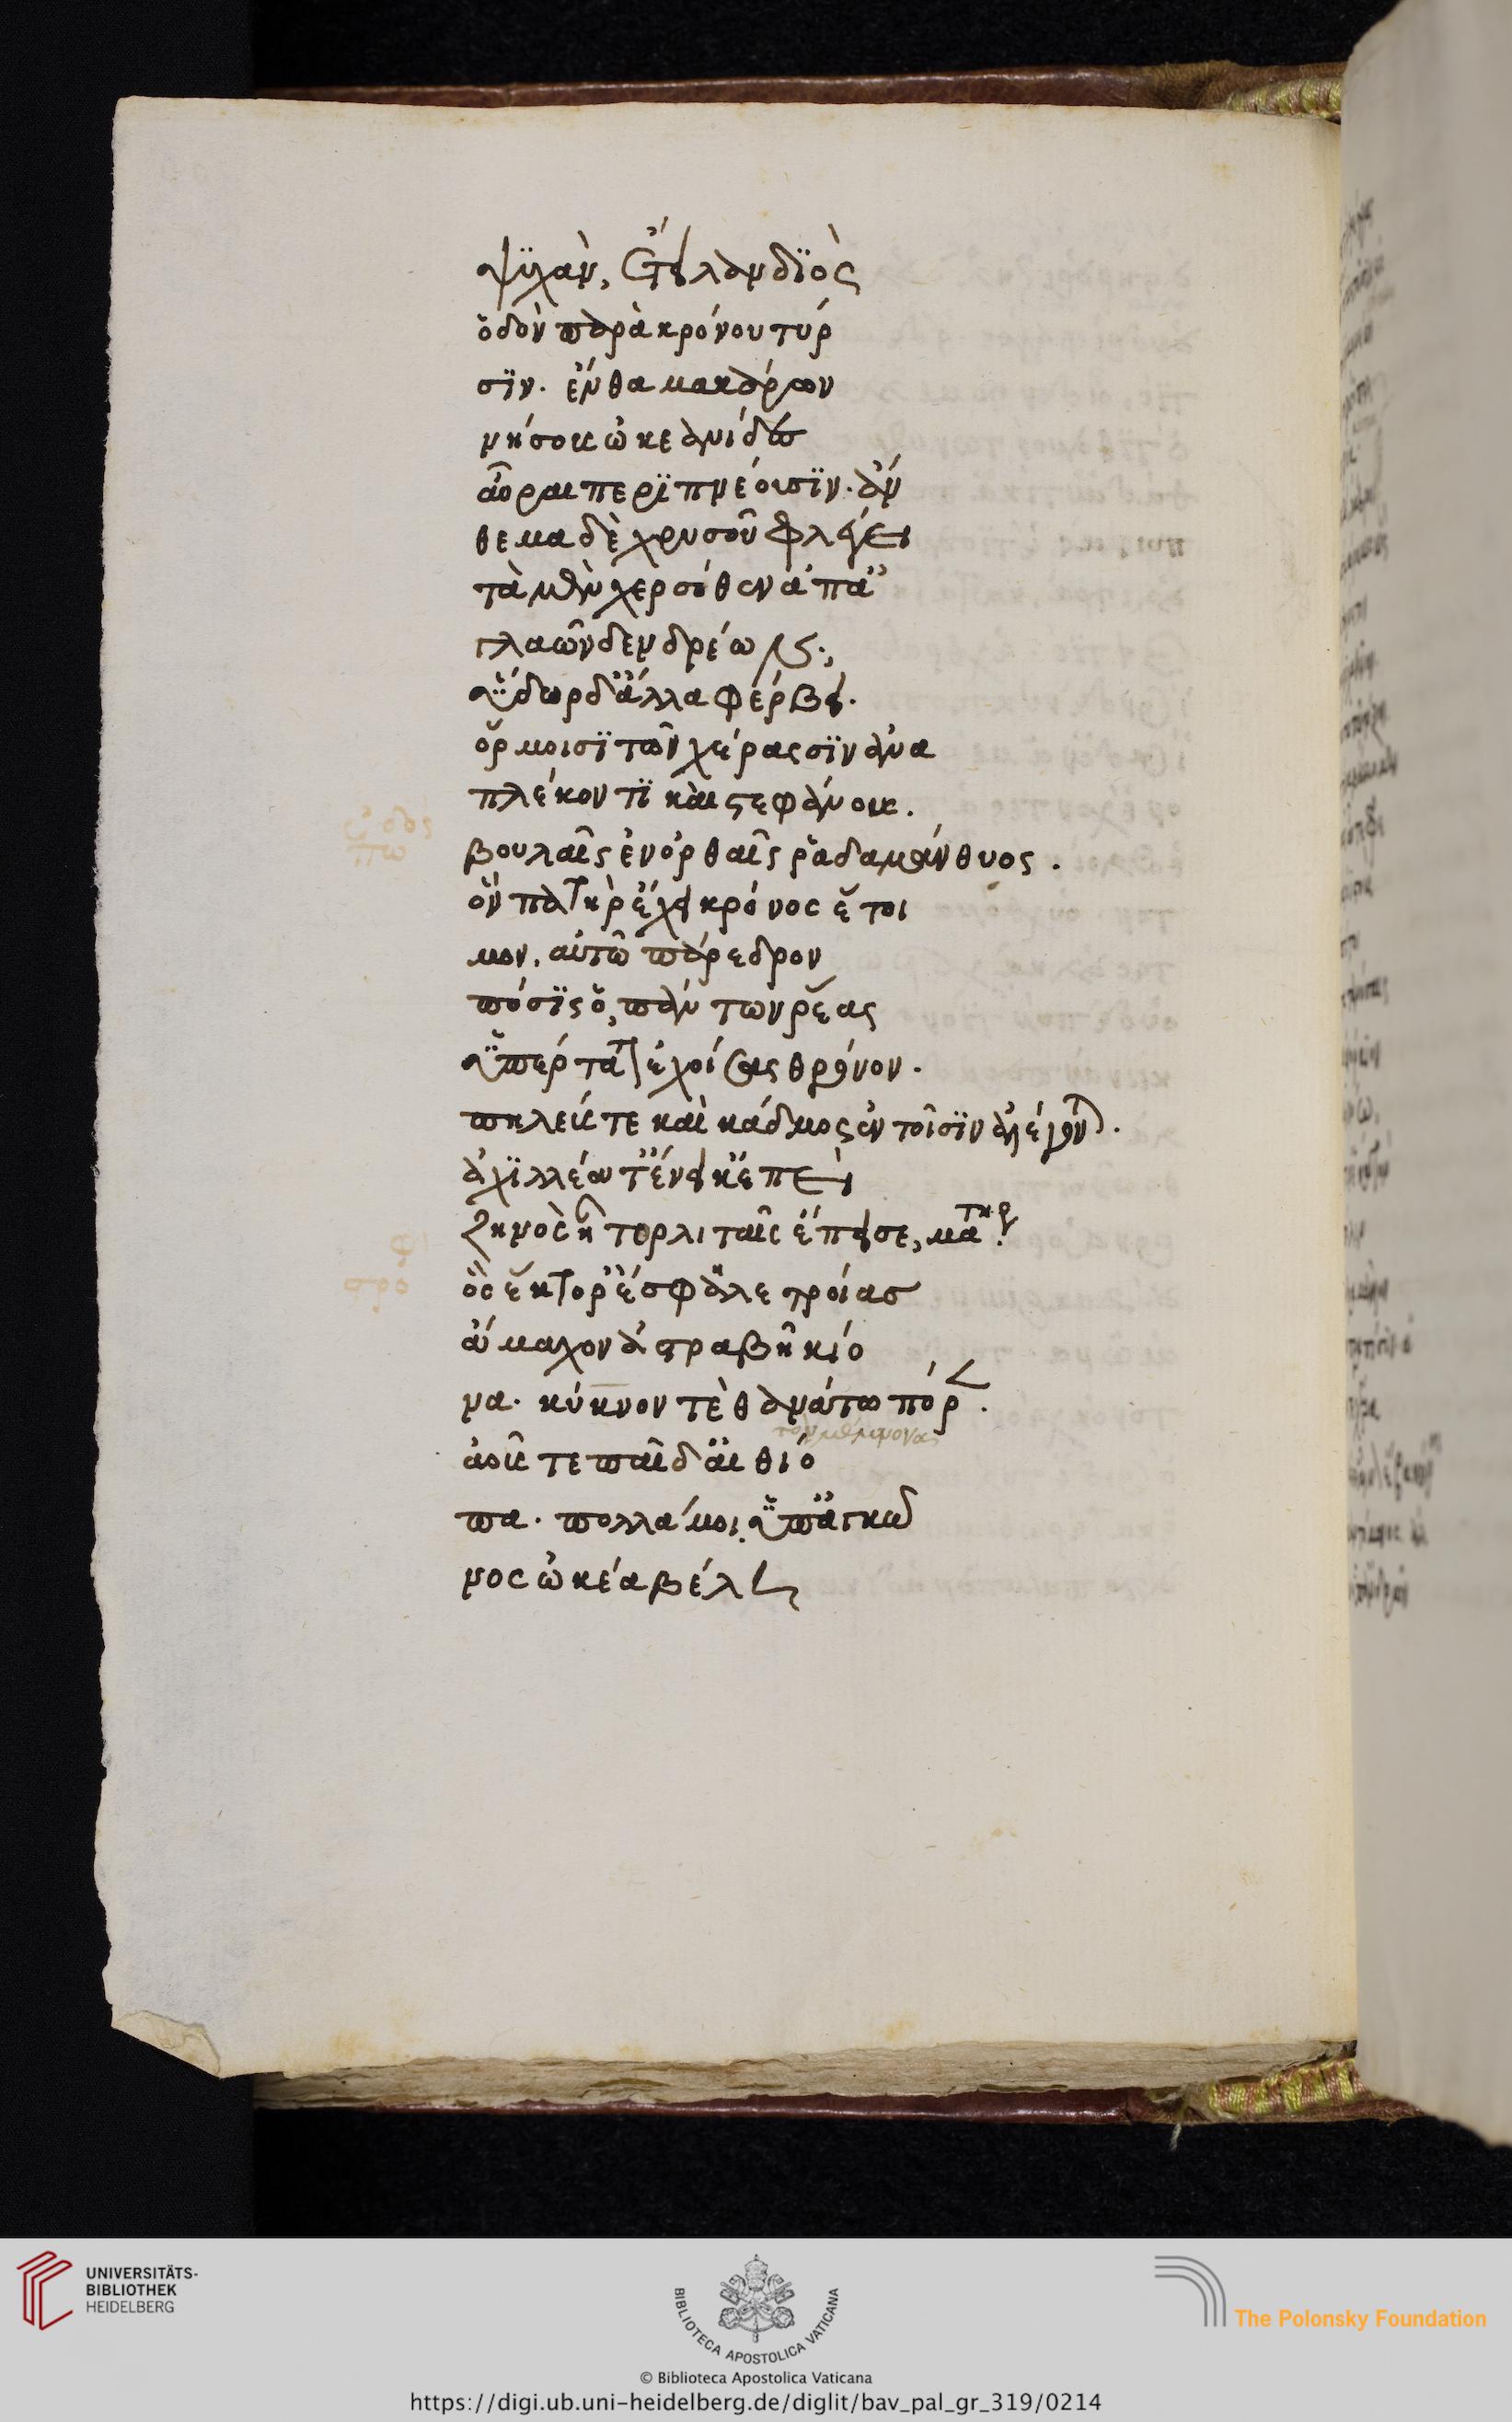 ψϋχὰν, ἔτειλαν διὸς
ὁδὸν παρὰ κρόνου τύρ
σϊν. ἔνθα μακάρων
νήσοις ὠκεανίδες
αὖραι περϊπνέοισϊν. ἄν
θεμα δὲ χρυσοῦ φλέγει
τὰ μὲν χερσόθεν ἀπ' ἀ
γλαῶν δενδρέων.
ὕδωρ δ' ἄλλα φέρβει.
ὅρμοισϊ τῶν χείρας σϊν ἀνα
πλέκοντϊ καὶ στεφάνοις.
βουλαῖς ἐν ὀρθαῖς ῥαδαμάνθυος.
ὃν πατὴρ ἔχει κρόνος ἕτοι
μον. αὐτῶ πάρεδρον
πόσϊς ὁ, πάντων ῥέας
ὑπέρτατ' ἐχοίσας θρόνον.
πηλεύς τε καὶ κάδμος ἐν τοῖσϊν ἀλέγονται.
ἀχϊλλέα τ' ἔνεικ' ἐπεὶ
ζηνὸς ἦτορ λιταῖς ἔπεισε, μάτηρ.
ὃς ἕκτορ' ἔσφαλε τροίας
ἄμαχον ἀστραβῆ κίο
να. κύκνον τὲ θανάτω πόρεν.
τὸν μέμνονα
ἀοῦς τε παῖδ' αἰθιό
πα. πολλά μοι ὑπ' ἀγκῶ
νος ὠκέα βέλη
UNIVERSITÄTS-
BIBLIOTHEK
HEIDELBERG
BIBLIOTECA APOSTOLICA VATICANA
The Polonsky Foundation
© Biblioteca Apostolica Vaticana
https://digi.ub.uni-heidelberg.de/diglit/bav_pal_gr_319/0214